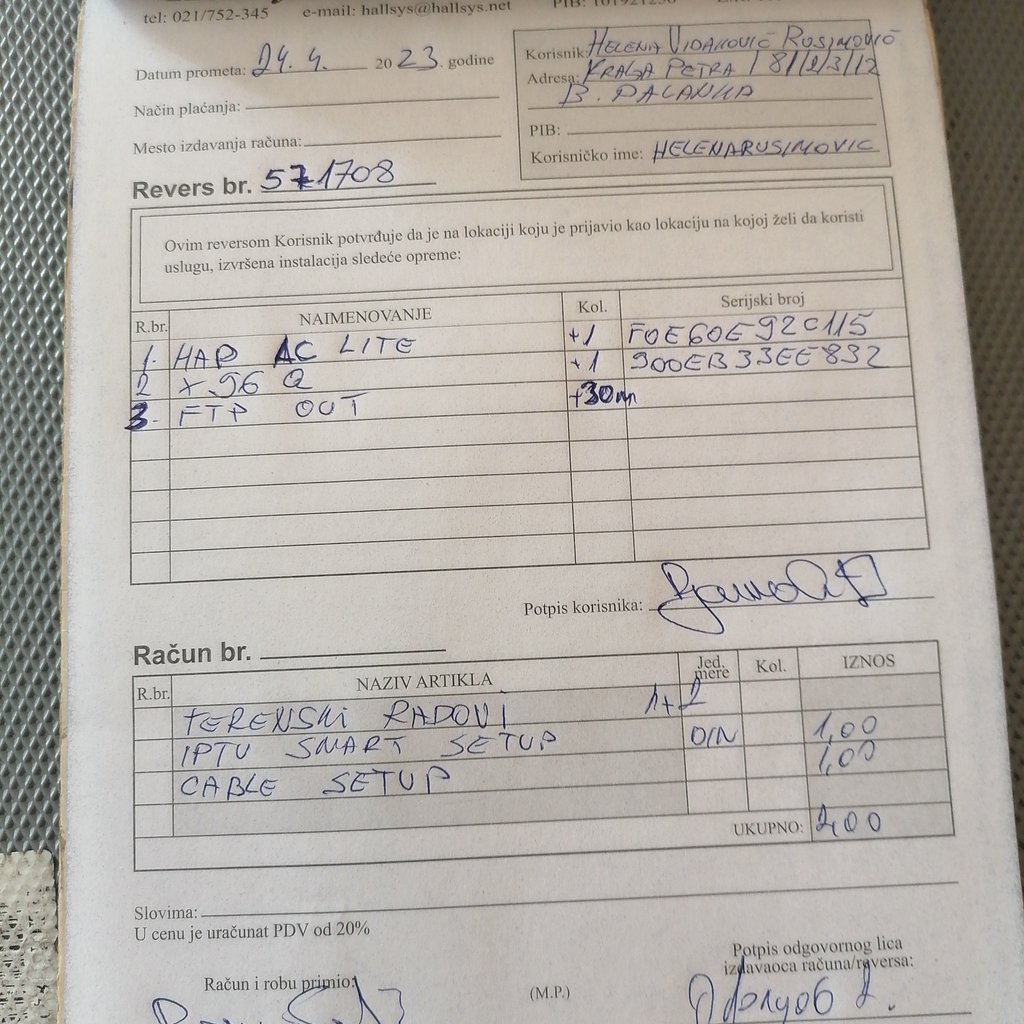 tel: 021/752-345 e-mail: hallsys@hallsys.net PIB:
Datum prometa: 24. 4. 2023. godine
Način plaćanja:
Mesto izdavanja računa:
Korisnik: HELENA VIDAKOVIĆ RUSIMOVIĆ
Adresa: KRALJA PETRA I 8/12/3/12
B. PALANKA
PIB:
Korisničko ime: HELENARUSIMOVIC
Revers br. 571708
Ovim reversom Korisnik potvrđuje da je na lokaciji koju je prijavio kao lokaciju na kojoj želi da koristi
uslugu, izvršena instalacija sledeće opreme:
R.br. NAIMENOVANJE Kol. Serijski broj
1. HAP AC LITE +1 F0E60E92C115
2 X96 Q +1 900EB33EE832
3. FTP OUT +30m
Potpis korisnika:
Račun br.
R.br. NAZIV ARTIKLA Jed. mere Kol. IZNOS
TERENSKI RADOVI 1+1
IPTV SMART SETUP DIN 1,00
CABLE SETUP 1,00
UKUPNO: 2,00
Slovima:
U cenu je uračunat PDV od 20%
Račun i robu primio:
(M.P.)
Potpis odgovornog lica
izdavaoca računa/reversa: